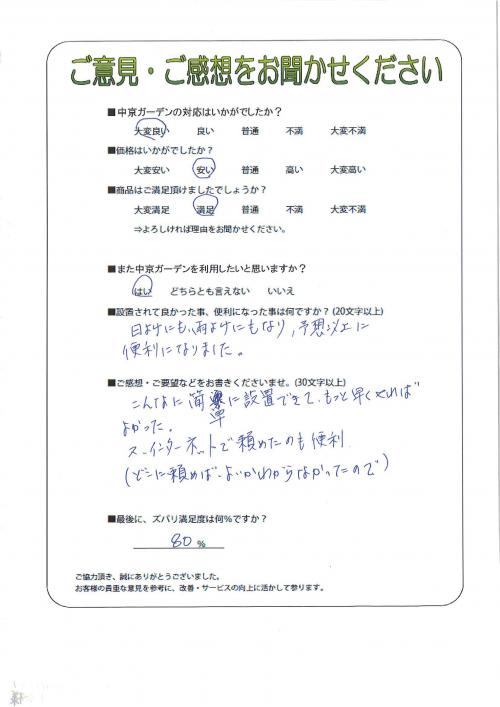 ご意見・ご感想をお聞かせください
■中京ガーデンの対応はいかがでしたか？
大変良い 良い 普通 不満 大変不満
■価格はいかがでしたか？
大変安い 安い 普通 高い 大変高い
■商品はご満足頂けましたでしょうか？
大変満足 満足 普通 不満 大変不満
⇒よろしければ理由をお聞かせください。
■また中京ガーデンを利用したいと思いますか？
はい どちらとも言えない いいえ
■設置されて良かった事、便利になった事は何ですか？(20文字以上)
日よけにも、雨よけにもなり、予想以上に
便利になりました。
■ご感想・ご要望などをお書きくださいませ。(30文字以上)
こんなに簡単に設置できて、もっと早くすれば
よかった。
又、インターネットで頼めたのも便利
(どこに頼めば、よいかわからなかったので)
■最後に、ズバリ満足度は何％ですか？
80 %
ご協力頂き、誠にありがとうございました。
お客様の貴重な意見を参考に、改善・サービスの向上に活かして参ります。